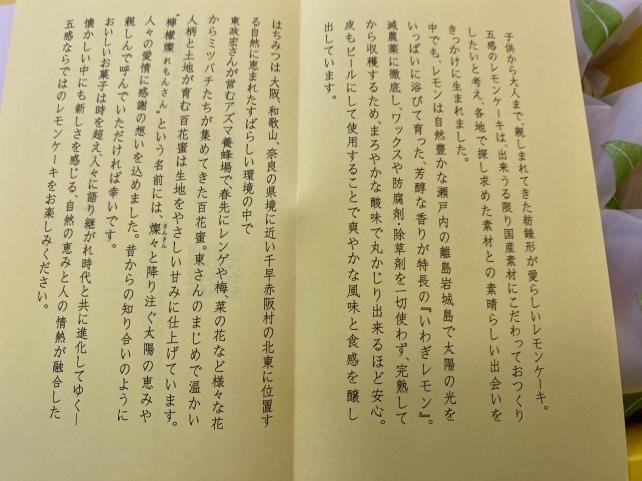 子供から大人まで、親しまれてきた紡錘形が愛らしいレモンケーキ。
五感のレモンケーキは、出来うる限り国産素材にこだわっておつくり
したいと考え、各地で探し求めた素材との素晴らしい出会いを
きっかけに生まれました。
中でも、レモンは自然豊かな瀬戸内の離島岩城島で太陽の光を
いっぱいに浴びて育った、芳醇な香りが特長の『いわぎレモン』。
減農薬に徹底し、ワックスや防腐剤・除草剤を一切使わず、完熟して
から収穫するため、まろやかな酸味で丸かじり出来るほど安心。
皮もピールにして使用することで爽やかな風味と食感を醸し
出しています。
はちみつは、大阪、和歌山、奈良の県境に近い千早赤阪村の北東に位置す
る自然に恵まれたすばらしい環境の中で
東政宏さんが営むアズマ養蜂場で、春先にレンゲや梅、菜の花など様々な花
からミツバチたちが集めてきた百花蜜。東さんのまじめで温かい
人柄と土地が育む百花蜜は生地をやさしい甘みに仕上げています。
"檸檬燦 れもんさん"という名前には、燦々と降り注ぐ太陽の恵みや
人々の愛情に感謝の想いを込めました。昔からの知り合いのように
親しんで呼んでいただければ幸いです。
おいしいお菓子は時を超え、人々に語り継がれ時代と共に進化してゆく—
懐かしい中にも新しさを感じる、自然の恵みと人の情熱が融合した
五感ならではのレモンケーキをお楽しみください。